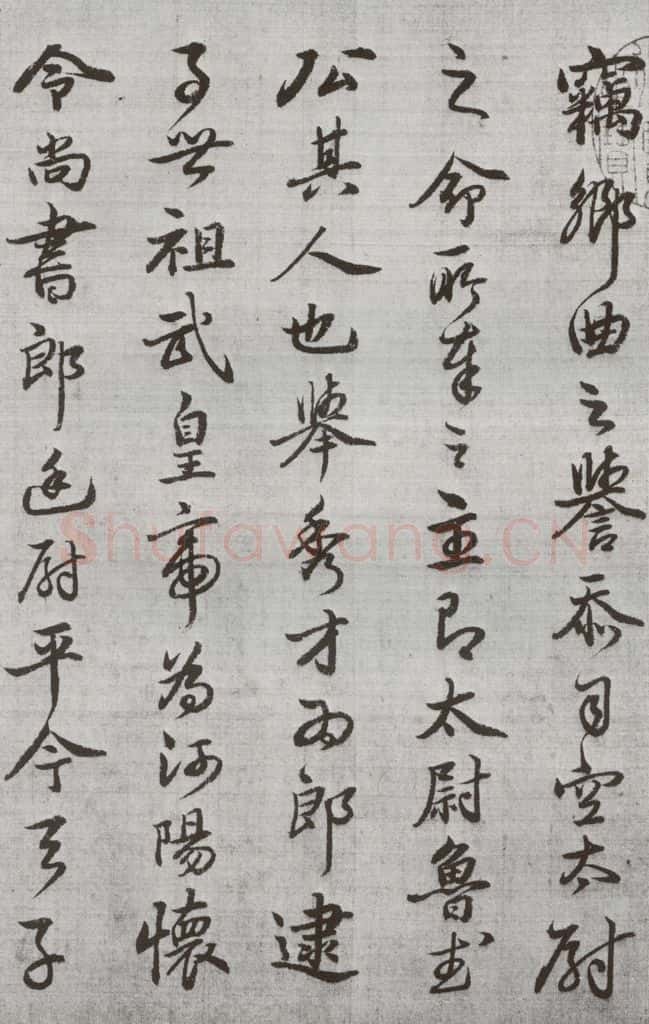 竊鄉曲之譽忝司空太尉
之命所奉之主即太尉魯武
公其人也舉秀才為郎逮
事世祖武皇帝為河陽懷
令尚書郎廷尉平今天子
Shufawang.CN